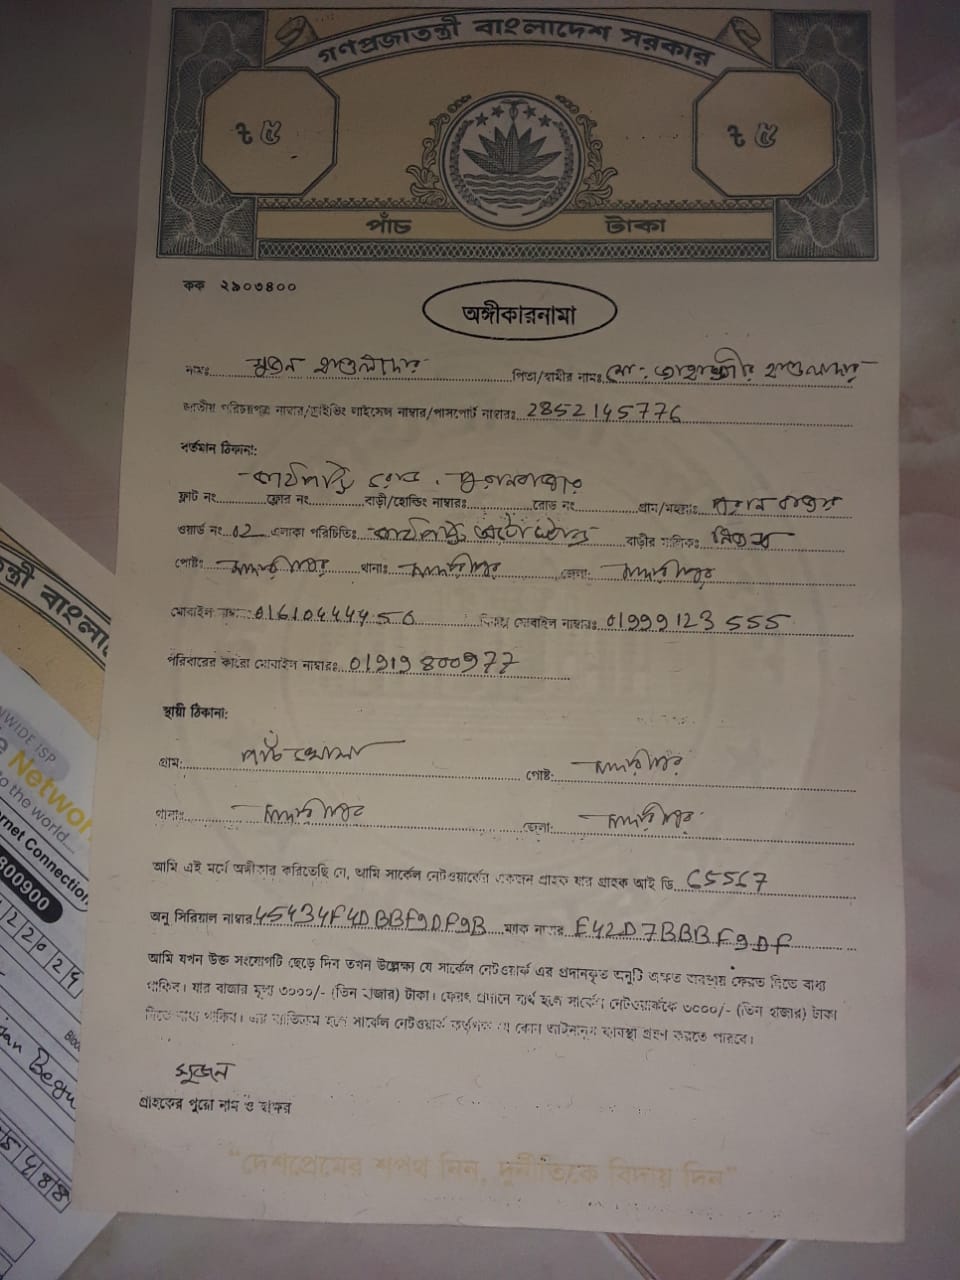 গণপ্রজাতন্ত্রী বাংলাদেশ সরকার
৳ ৫ ৳ ৫
পাঁচ টাকা
কক ২৯০৩৪০০
অঙ্গীকারনামা
নামঃ সুজন হাওলাদার পিতা/স্বামীর নামঃ মো: জাহাঙ্গীর হাওলাদার
জাতীয় পরিচয়পত্র নাম্বার/ড্রাইভিং লাইসেন্স নাম্বার/পাসপোর্ট নাম্বারঃ 2852145776
বর্তমান ঠিকানা:
রোড, পুরানবাজার
ফ্লাট নং ফ্লোর নং বাড়ী/হোল্ডিং নাম্বারঃ রোড নং গ্রাম/মহল্লাঃ পুরান বাজার
ওয়ার্ড নং 02 এলাকা পরিচিতিঃ বাড়ীর মালিকঃ নিজস্ব
পোষ্টঃ মাদারীপুর থানাঃ মাদারীপুর জেলা: মাদারীপুর
মোবাইল নাম্বার: 01610444450 বিকল্প মোবাইল নাম্বারঃ 01999123555
পরিবারের কারো মোবাইল নাম্বারঃ 01919800977
স্থায়ী ঠিকানা:
গ্রাম: পাঁচখোলা পোষ্ট: মাদারীপুর
থানাঃ মাদারীপুর জেলা: মাদারীপুর
আমি এই মর্মে অঙ্গীকার করিতেছি যে, আমি সার্কেল নেটওয়ার্কের একজন গ্রাহক যার গ্রাহক আই ডি C5567
অনু সিরিয়াল নাম্বার 45434F4DBBF9DF9B ম্যাক নাম্বার E42D7BBBF9DF
আমি যখন উক্ত সংযোগটি ছেড়ে দিব তখন উল্লেক্ষ্য যে সার্কেল নেটওয়ার্ক এর প্রদানকৃত অনুটি অক্ষত অবস্থায় ফেরত দিতে বাধ্য
থাকিব। যার বাজার মূল্য ৩০০০/- (তিন হাজার) টাকা। ফেরৎ প্রদানে ব্যর্থ হলে সার্কেল নেটওয়ার্ককে ৩০০০/- (তিন হাজার) টাকা
দিতে বাধ্য থাকিব। এর ব্যতিক্রম হলে সার্কেল নেটওয়ার্ক কর্তৃপক্ষ যে কোন আইনানুগ ব্যবস্থা গ্রহন করতে পারবে।
সুজন
গ্রাহকের পুরো নাম ও স্বাক্ষর
“দেশপ্রেমের শপথ নিন, দুর্নীতিকে বিদায় দিন”
NWIDE ISP
Networ
o the world...
rnet Connection
800900
Begu